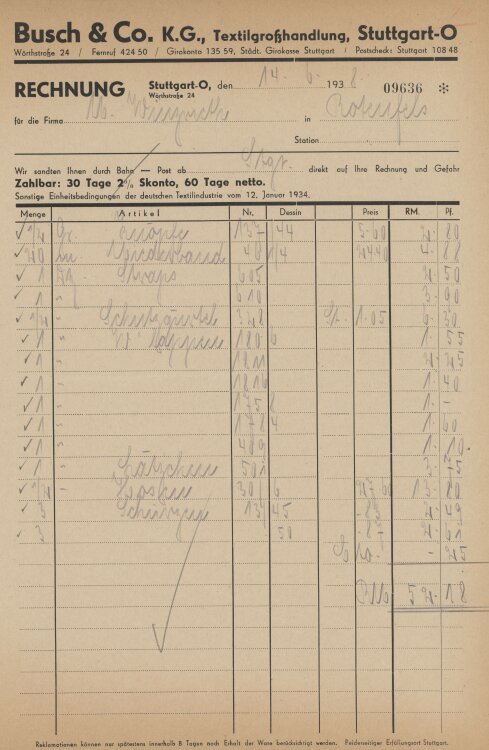 Busch & Co. K.G., Textilgroßhandlung, Stuttgart-O
Wörthstraße 24 / Fernruf 424 50 / Girokonto 135 59, Städt. Girokasse Stuttgart / Postscheck: Stuttgart 108 48
RECHNUNG Stuttgart-O, den 14. 6. 1938. 09636 *
Wörthstraße 24
für die Firma in Rotenfels
Station
Wir sandten Ihnen durch Bahn — Post ab Stgt. direkt auf Ihre Rechnung und Gefahr
Zahlbar: 30 Tage 2% Skonto, 60 Tage netto.
Sonstige Einheitsbedingungen der deutschen Textilindustrie vom 12. Januar 1934.
Menge Artikel Nr. Dessin Preis RM. Pf.
1/2 Gr. 137 44 5.60 2. 80
20 m 48 1/4 4. 88
1 " 605 2. 50
1 " 610 3. 00
1/2 " 328 St. 1.05 6. 30
1 " 180 6 1. 55
1 " 1811 2. 25
1 " 1816 1. 40
1 " 175 8 1. -
1 " 178 4 1. 60
1 " 489 1. 10
1 " Lätzchen 501 3. 75
1/2 " Hosen 301 6 27.60 13. 80
3 Schürzen 131 45 -.83 2. 49
3 50 -.87 2. 61
- 25
RM 52. 18
Reklamationen können nur spätestens innerhalb 8 Tagen nach Erhalt der Ware berücksichtigt werden. Beiderseitiger Erfüllungsort Stuttgart.